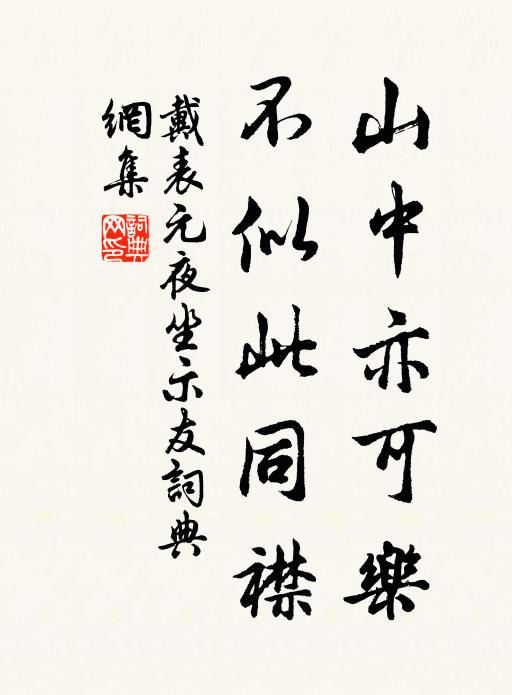 山中亦可樂
不似此同襟
戴表元夜坐示友詞典
網集
詞典
网印